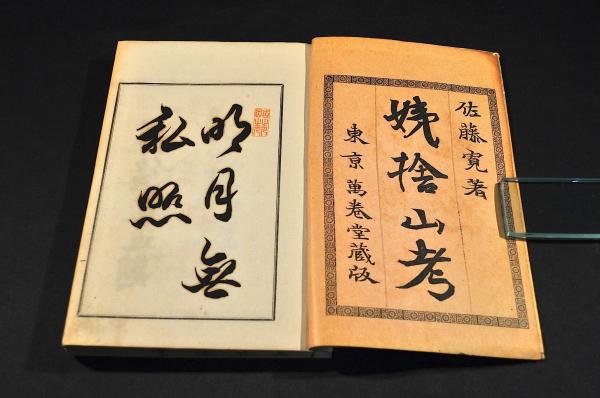 佐藤寛著
姨捨山考
東京萬巻堂蔵版
明月無
私照